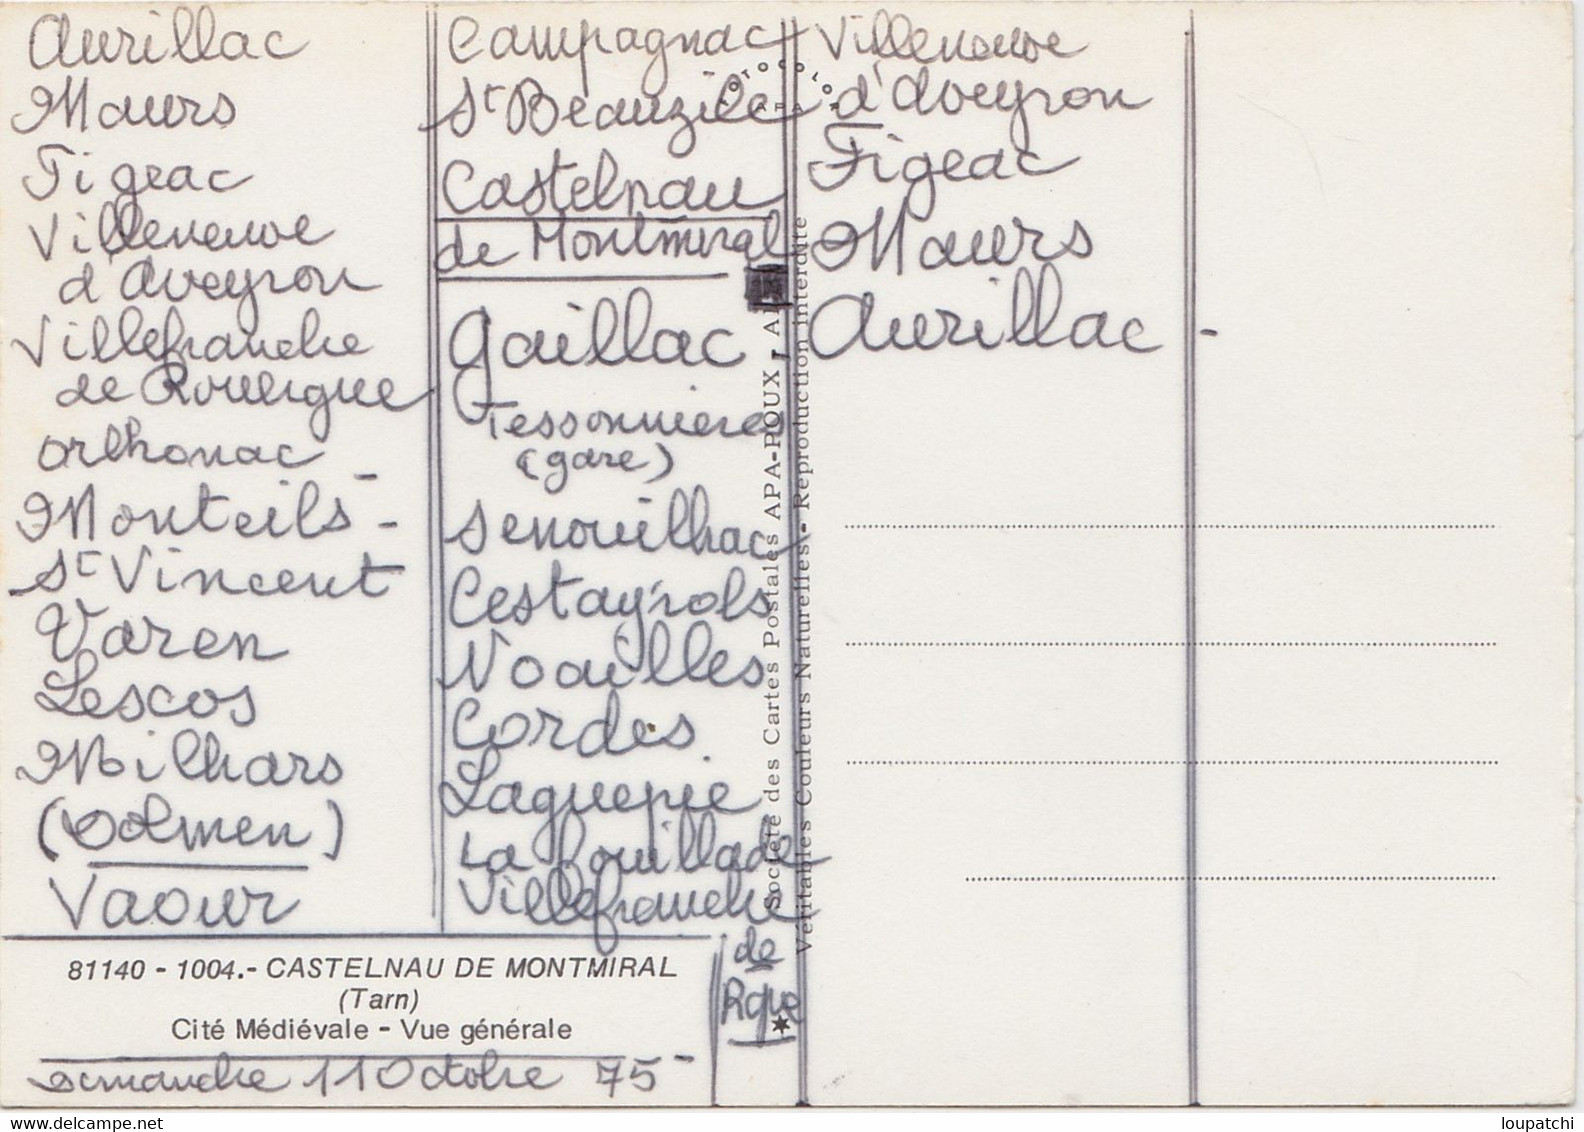 Aurillac
Maurs
Figeac
Villeneuve
d'Aveyron
Villefranche
de Rouergue
Orlhonac -
Monteils -
St Vincent
Varen
Lescos
Milhars
(Dolmen)
Vaour
Campagnac
St Beauzile
Castelnau
de Montmiral
Gaillac
Tessonnieres
(gare)
Senouilhac
Cestayrols
Noailles
Cordes
Laguepie
La Fouillade
Villefranche
de
Rgue
Villeneuve
d'Aveyron
Figeac
Maurs
Aurillac -
81140 - 1004.- CASTELNAU DE MONTMIRAL
(Tarn)
Cité Médiévale - Vue générale
dimanche 11 Octobre 75 -
Société des Cartes Postales APA-POUX - Al
Véritables Couleurs Naturelles - Reproduction interdite
www.delcampe.net
loupatchi